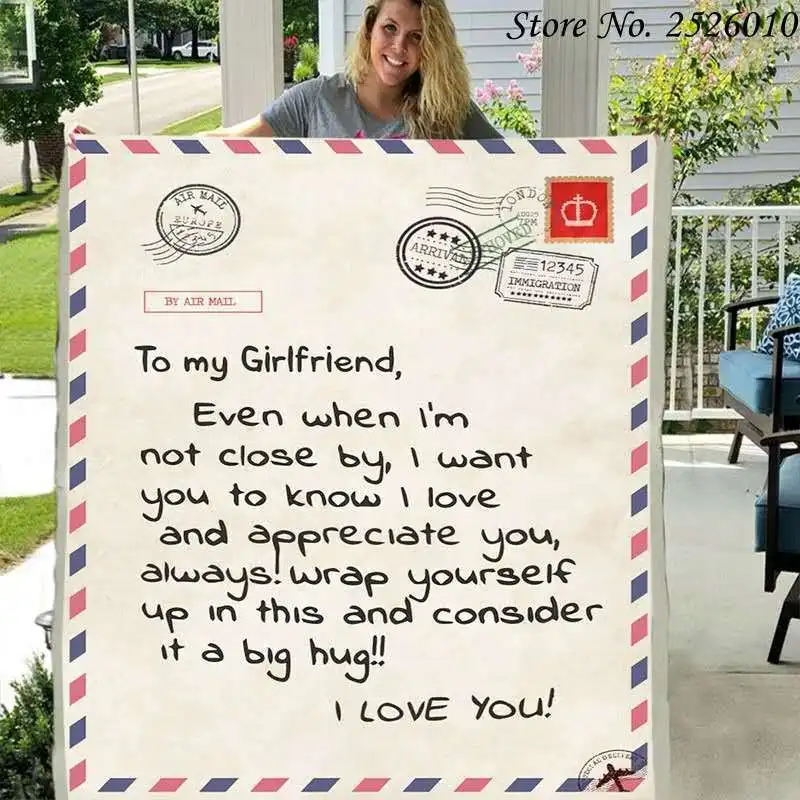 Store No. 2526010
AIR MAIL
EUROPE
LONDON
7PM
ARRIVAL
12345
IMMIGRATION
BY AIR MAIL
To my Girlfriend,
Even when I'm
not close by, I want
you to know I love
and appreciate you,
always! wrap yourself
up in this and consider
it a big hug!!
I LOVE YOU!